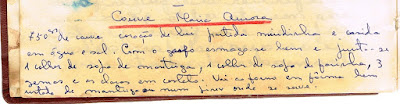 Couve Maria Amora
750 grs de couve coração de boi partida miudinha e cosida
em água e sal. Com o garfo esmaga-se bem e junta-se
1 colher de sopa de manteiga, 1 colher de sopa de farinha, 3
gemas e as claras em castelo. Vai ao forno em fôrma bem
untada de manteiga ou num pirex onde se serve.